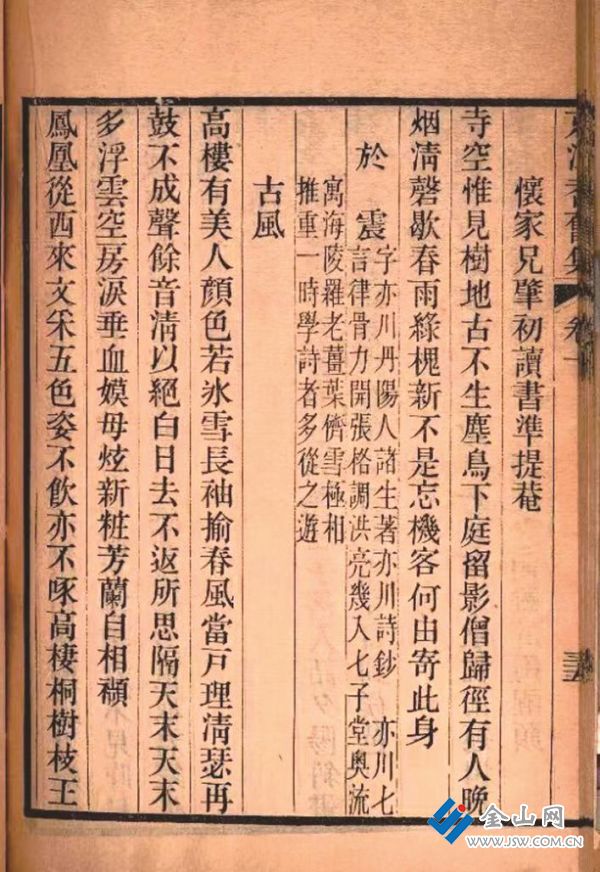 懷家兄肇初讀書準提菴
寺空惟見樹地古不生塵鳥下庭留影僧歸徑有人晚
烟淸磬歇春雨綠槐新不是忘機客何由寄此身
於震
字亦川丹陽人諸生著亦川詩鈔 亦川七
言律骨力開張格調洪亮幾入七子堂奧流
寓海陵羅老薑葉儕雪極相
推重一時學詩者多從之遊
古風
高樓有美人顏色若氷雪長袖揄春風當戸理淸瑟再
鼓不成聲餘音淸以絕白日去不返所思隔天末天末
多浮雲空房淚垂血嫫母炫新粧芳蘭自相纇
鳳凰從西來文采五色姿不飮亦不啄高棲桐樹枝王
金山网
WWW.JSW.COM.CN